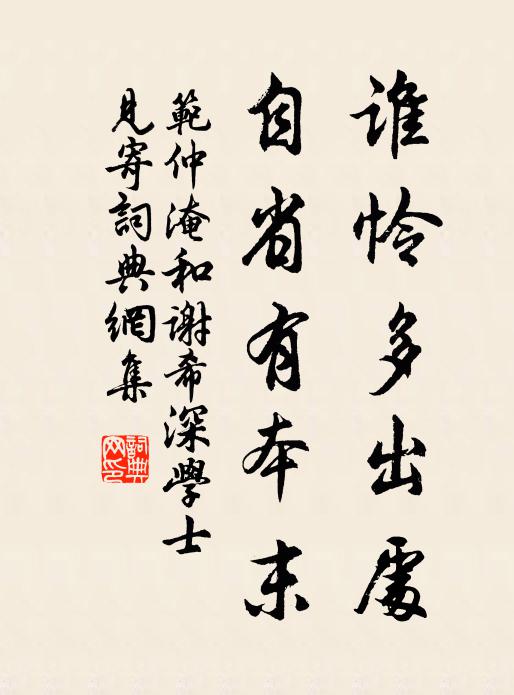 誰怜多出處
自省有本末
範仲淹和谢希深學士
見寄詞典網集
詞典网印